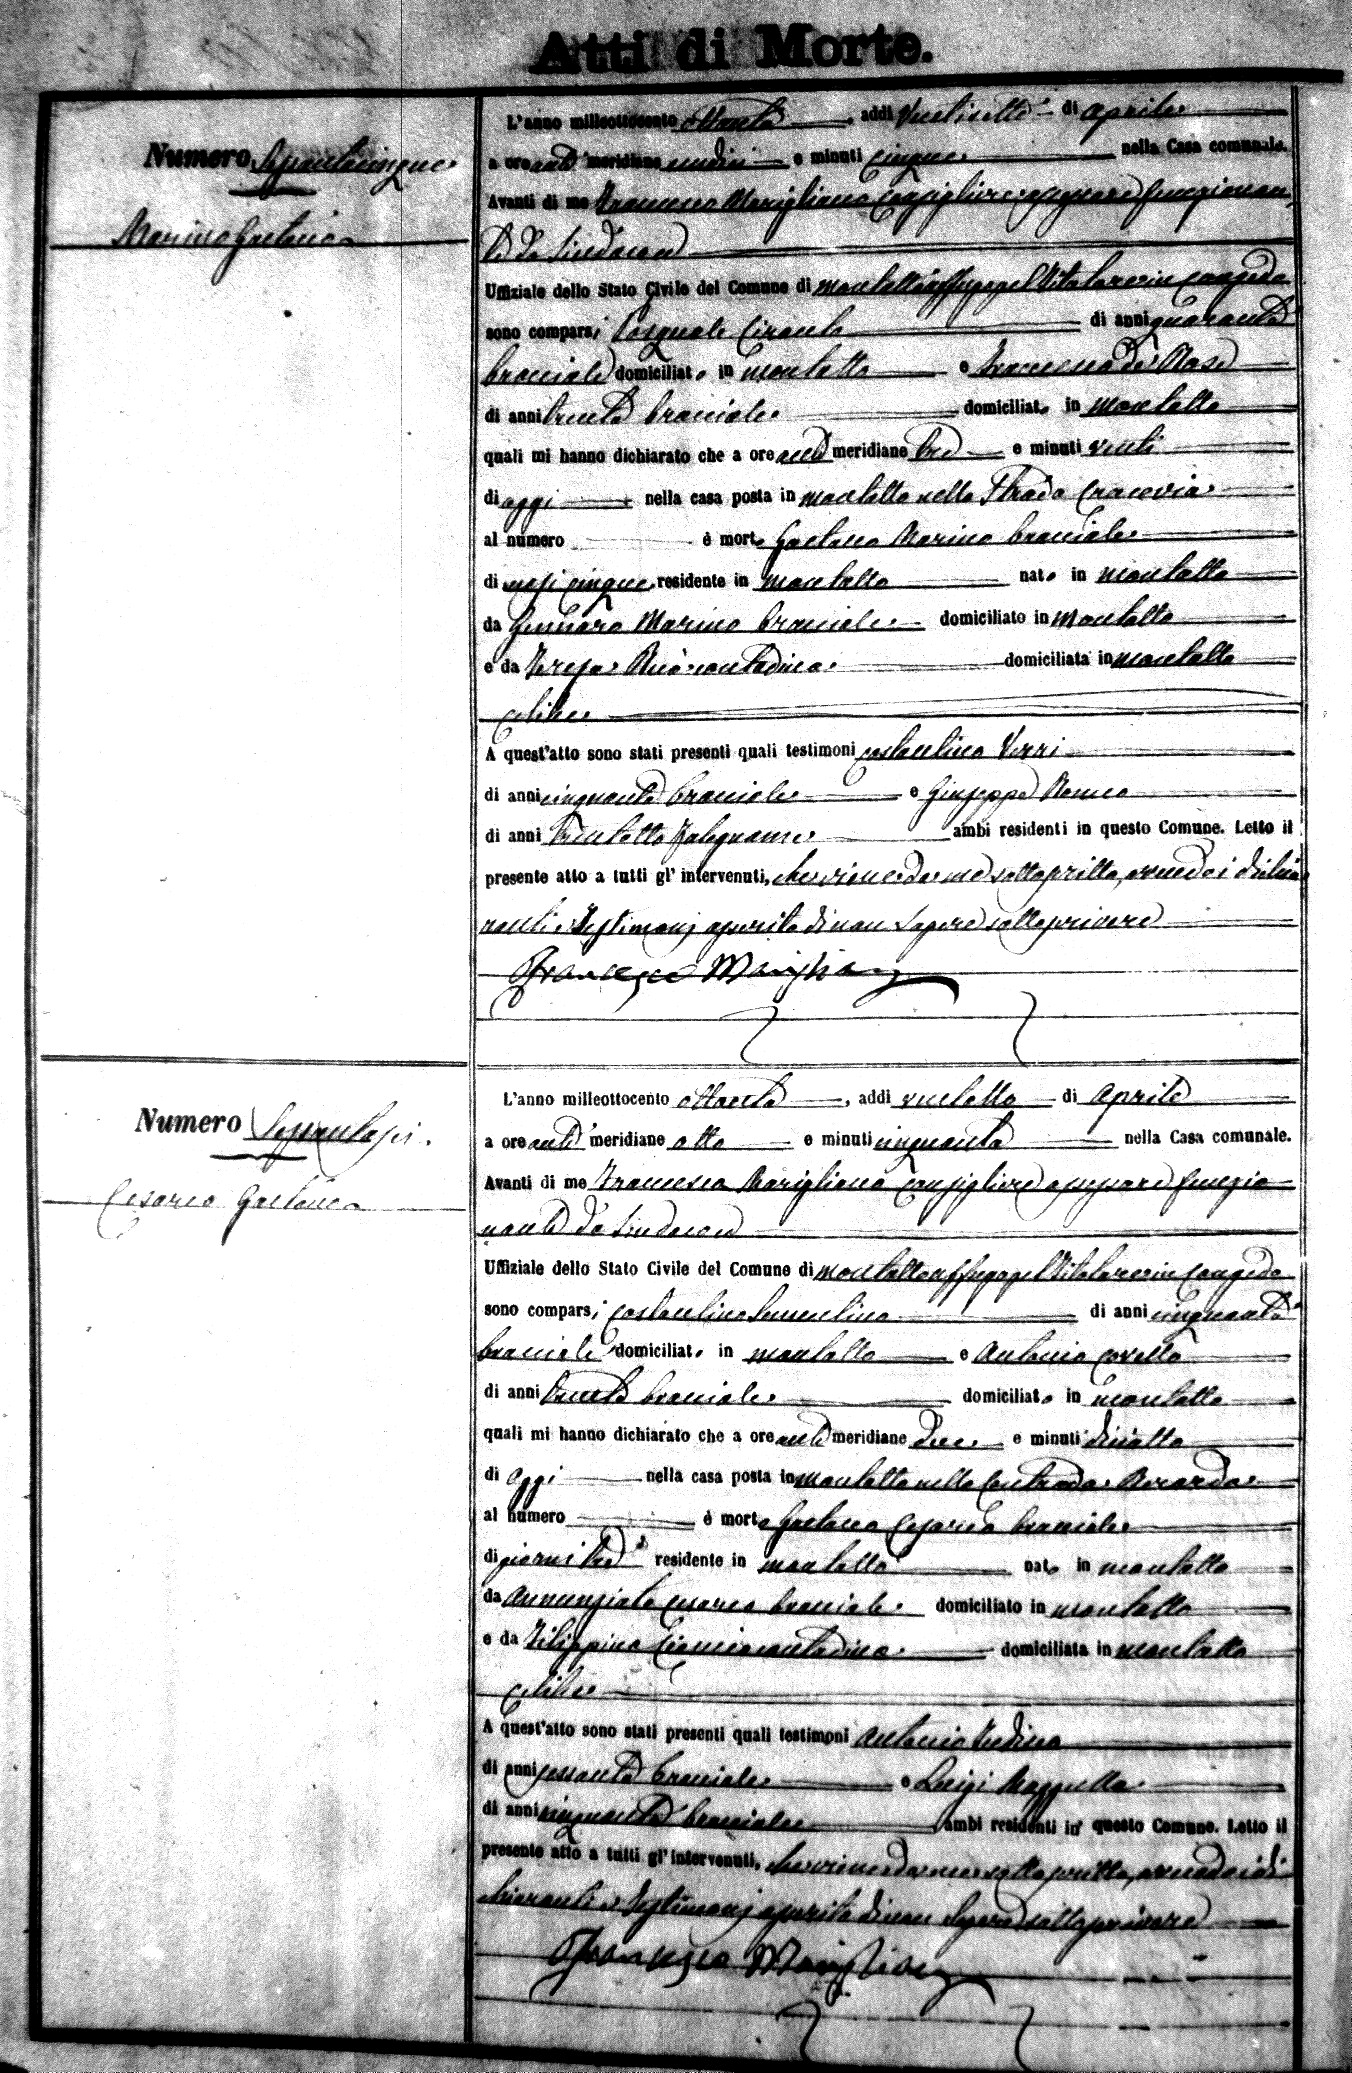 Atti di Morte.
Numero Sessantacinque
Marino Gaetano
L'anno milleottocento ottanta, addì Ventisette di Aprile
a ore anti meridiane undici e minuti cinque nella Casa comunale.
Avanti di me Francesco Marigliano Consigliere Assessore funzionan
te da Sindaco
Uffiziale dello Stato Civile del Comune di Montalto Uffugo pel Titolare in congedo
sono comparsi Pasquale Ciranto di anni quaranta
bracciale domiciliato in Montalto e Francesco De Rose
di anni trenta bracciale domiciliato in Montalto
quali mi hanno dichiarato che a ore anti meridiane tre e minuti venti
di oggi nella casa posta in Montalto nella Strada Cracovia
al numero è morto Gaetano Marino bracciale
di mesi cinque residente in Montalto nato in Montalto
da Gennaro Marino bracciale domiciliato in Montalto
e da Teresa contadina domiciliata in Montalto
celibe
A quest'atto sono stati presenti quali testimoni Costantino Verri
di anni cinquanta bracciale e Giuseppe Romeo
di anni trentotto falegname ambi residenti in questo Comune. Letto il
presente atto a tutti gl'intervenuti, che viene da me sottoscritto, avendo i dichia
ranti e Testimonj asserito di non sapere sottoscrivere
Francesco Marigliano
Numero Sessantasei.
Cesario Gaetano
L'anno milleottocento ottanta, addì ventotto di Aprile
a ore anti meridiane otto e minuti cinquanta nella Casa comunale.
Avanti di me Francesco Marigliano Consigliere Assessore funzio
nante da Sindaco
Uffiziale dello Stato Civile del Comune di Montalto Uffugo pel Titolare in congedo
sono comparsi Costantino Sementino di anni cinquanta
bracciale domiciliato in Montalto e Antonio Covello
di anni trenta bracciale domiciliato in Montalto
quali mi hanno dichiarato che a ore anti meridiane due e minuti diciotto
di oggi nella casa posta in Montalto nella Contrada
al numero è morto Gaetano Cesario bracciale
di giorni tre residente in Montalto nato in Montalto
da Annunziato Cesario bracciale domiciliato in Montalto
e da Filippina contadina domiciliata in Montalto
celibe
A quest'atto sono stati presenti quali testimoni Antonio
di anni sessanta bracciale e Luigi Mazzulla
di anni cinquanta bracciale ambi residenti in questo Comune. Letto il
presente atto a tutti gl'intervenuti, che viene da me sottoscritto, avendo i di
chiaranti e Testimonj asserito di non sapere sottoscrivere
Francesco Marigliano